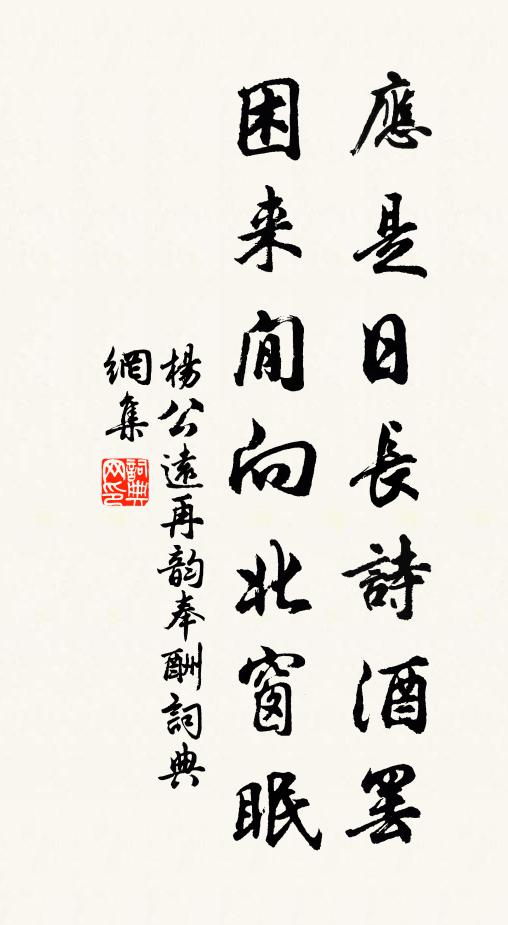 應是日長詩酒罢
困来閒向北窗眠
楊公遠再韵奉酬詞典
網集
詞典
网印